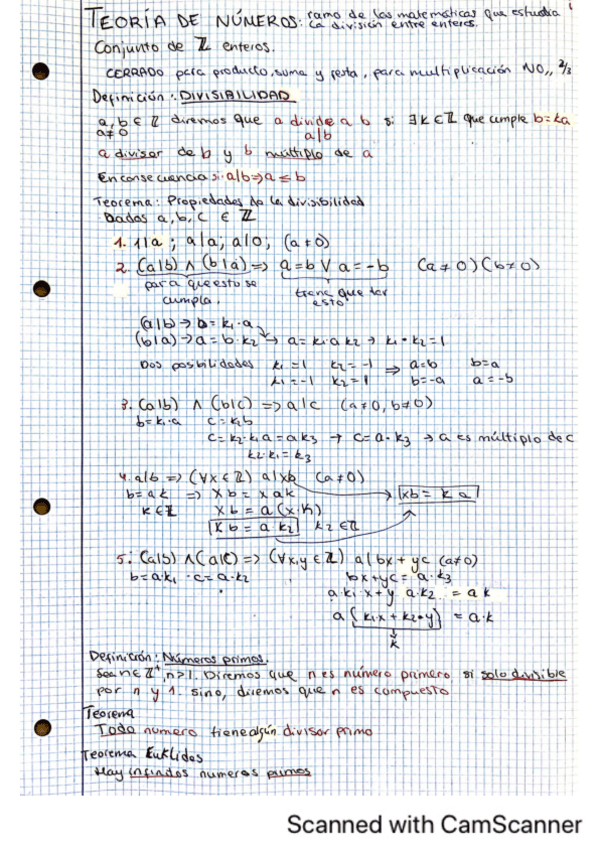 TEORÍA DE NÚMEROS: ramo de las matemáticas que estudia
la división entre enteros.
Conjunto de ℤ enteros.
CERRADO para producto, suma y resta, para multiplicación NO,, 2/3
Definición: DIVISIBILIDAD
a, b ∈ ℤ diremos que a divide a b si ∃k ∈ ℤ que cumple b=ka
a≠0 a|b
a divisor de b y b múltiplo de a
En consecuencia si a|b ⇒ a ≤ b
Teorema: Propiedades de la divisibilidad
Dados a, b, c ∈ ℤ
1. 1|a ; a|a ; a|0 ; (a≠0)
2. (a|b) ∧ (b|a) ⇒ a=b ∨ a=-b (a≠0)(b≠0)
para que esto se cumpla. tiene que ser esto
(a|b) → b=k₁·a
(b|a) → a=b·k₂ → a=k₁·a k₂ → k₁·k₂=1
Dos posibilidades k₁=1 k₂=-1 ⇒ a=b b=a
k₁=-1 k₂=1 b=-a a=-b
3. (a|b) ∧ (b|c) ⇒ a|c (a≠0, b≠0)
b=k₁·a c=k₂b
c=k₂·k₁a=ak₃ → c=a·k₃ → a es múltiplo de c
k₂·k₁=k₃
4. a|b ⇒ (∀x∈ℤ) a|xb (a≠0)
b=ak ⇒ xb=xak xb = k a
k∈ℤ xb=a(x·k)
xb=a k₂ k₂∈ℤ
5. (a|b) ∧ (a|c) ⇒ (∀x,y∈ℤ) a|bx+yc (a≠0)
b=a·k₁ · c=a·k₂ bx+yc=a·k₃
a·k₁·x+y a·k₂ = a k
a(k₁x+k₂·y) = a·k
k
Definición: Números primos.
Sea n∈ℤ⁺, n>1. Diremos que n es número primero si solo divisible
por n y 1. sino, diremos que n es compuesto
Teorema
Todo numero tiene algún divisor primo
Teorema Euklides
Hay infinitos numeros primos
Scanned with CamScanner